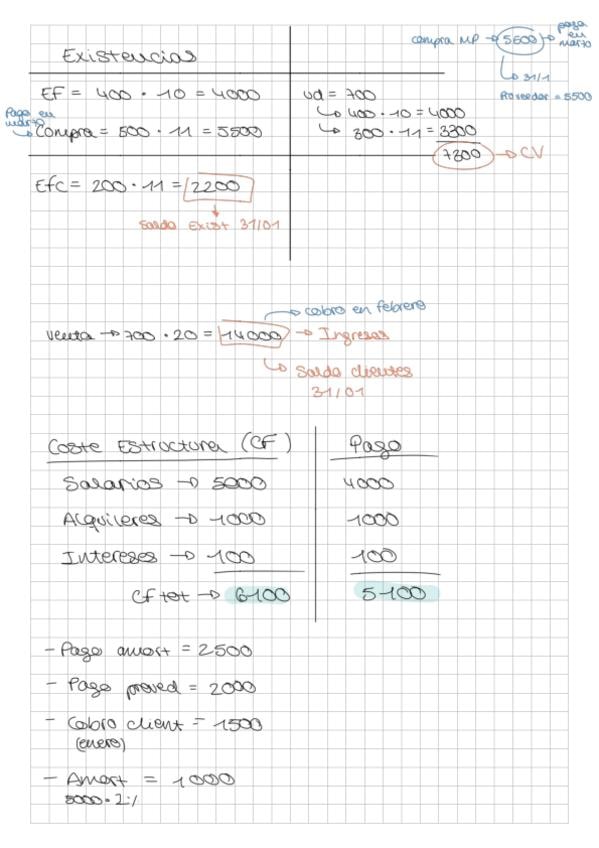 compra MP → 5500 → paga en marzo
↳ 31/1
Proveedor = 5500
Existencias
EF = 400 · 10 = 4000
ud = 700
↳ 400 · 10 = 4000
Pago en marzo
↳ Compra = 500 · 11 = 5500
↳ 300 · 11 = 3300
7300 → CV
EfC = 200 · 11 = 2200
Saldo Exist 31/01
→ cobro en febrero
Venta → 700 · 20 = 14000 → Ingresos
↳ Saldo clientes
31/01
Coste Estructura (CF)
Pago
Salarios → 5000
4000
Alquileres → 1000
1000
Intereses → 100
100
CF tot → 6100
5100
- Pago amort = 2500
- Pago proved = 2000
- Cobro client = 1500
(enero)
- Amort = 1000
5000 · 2%